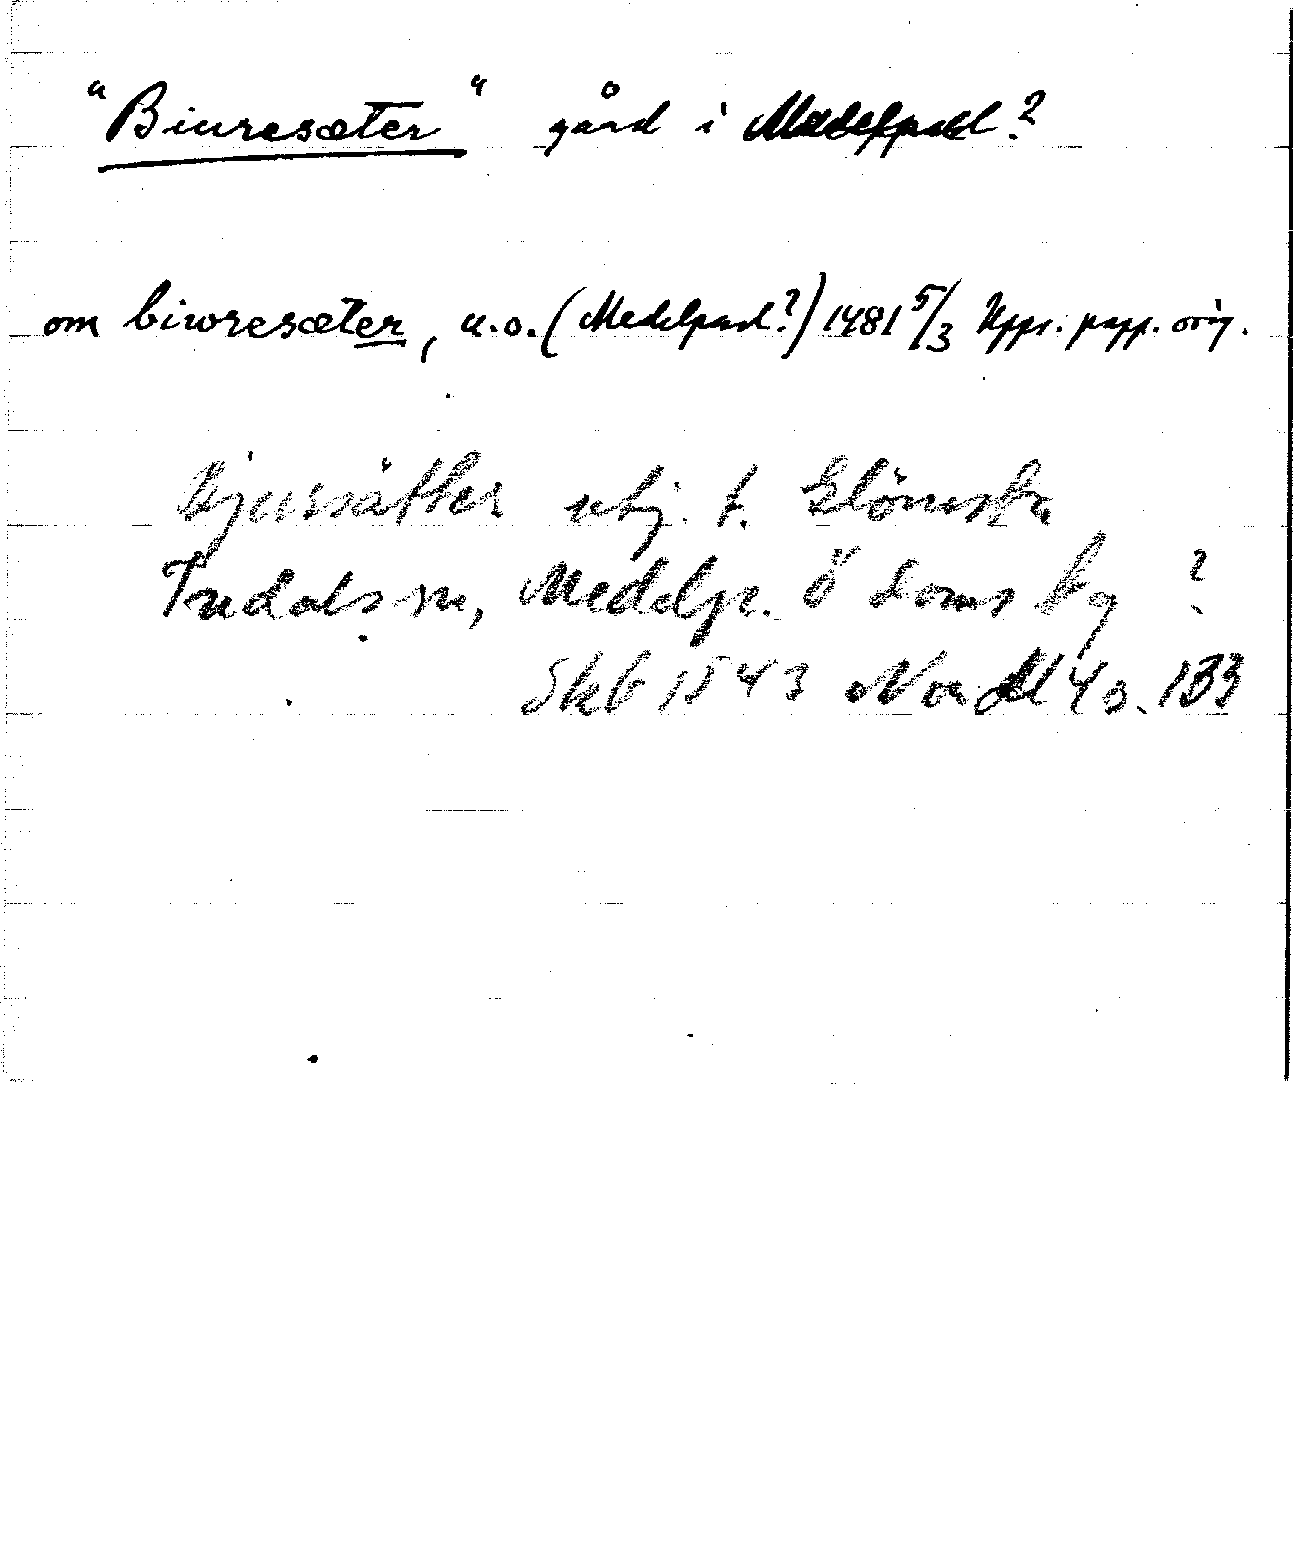 "Biuresæter" gård i Medelpad?
om biwresæter, u.o. (Medelpad?) 1481 5/3 Upps. papp. orig.
Bjursätter utj. t. Klönsta
Indals sn, Medelp. Ö doms by?
Skb 1543 Nordl 4 s. 133